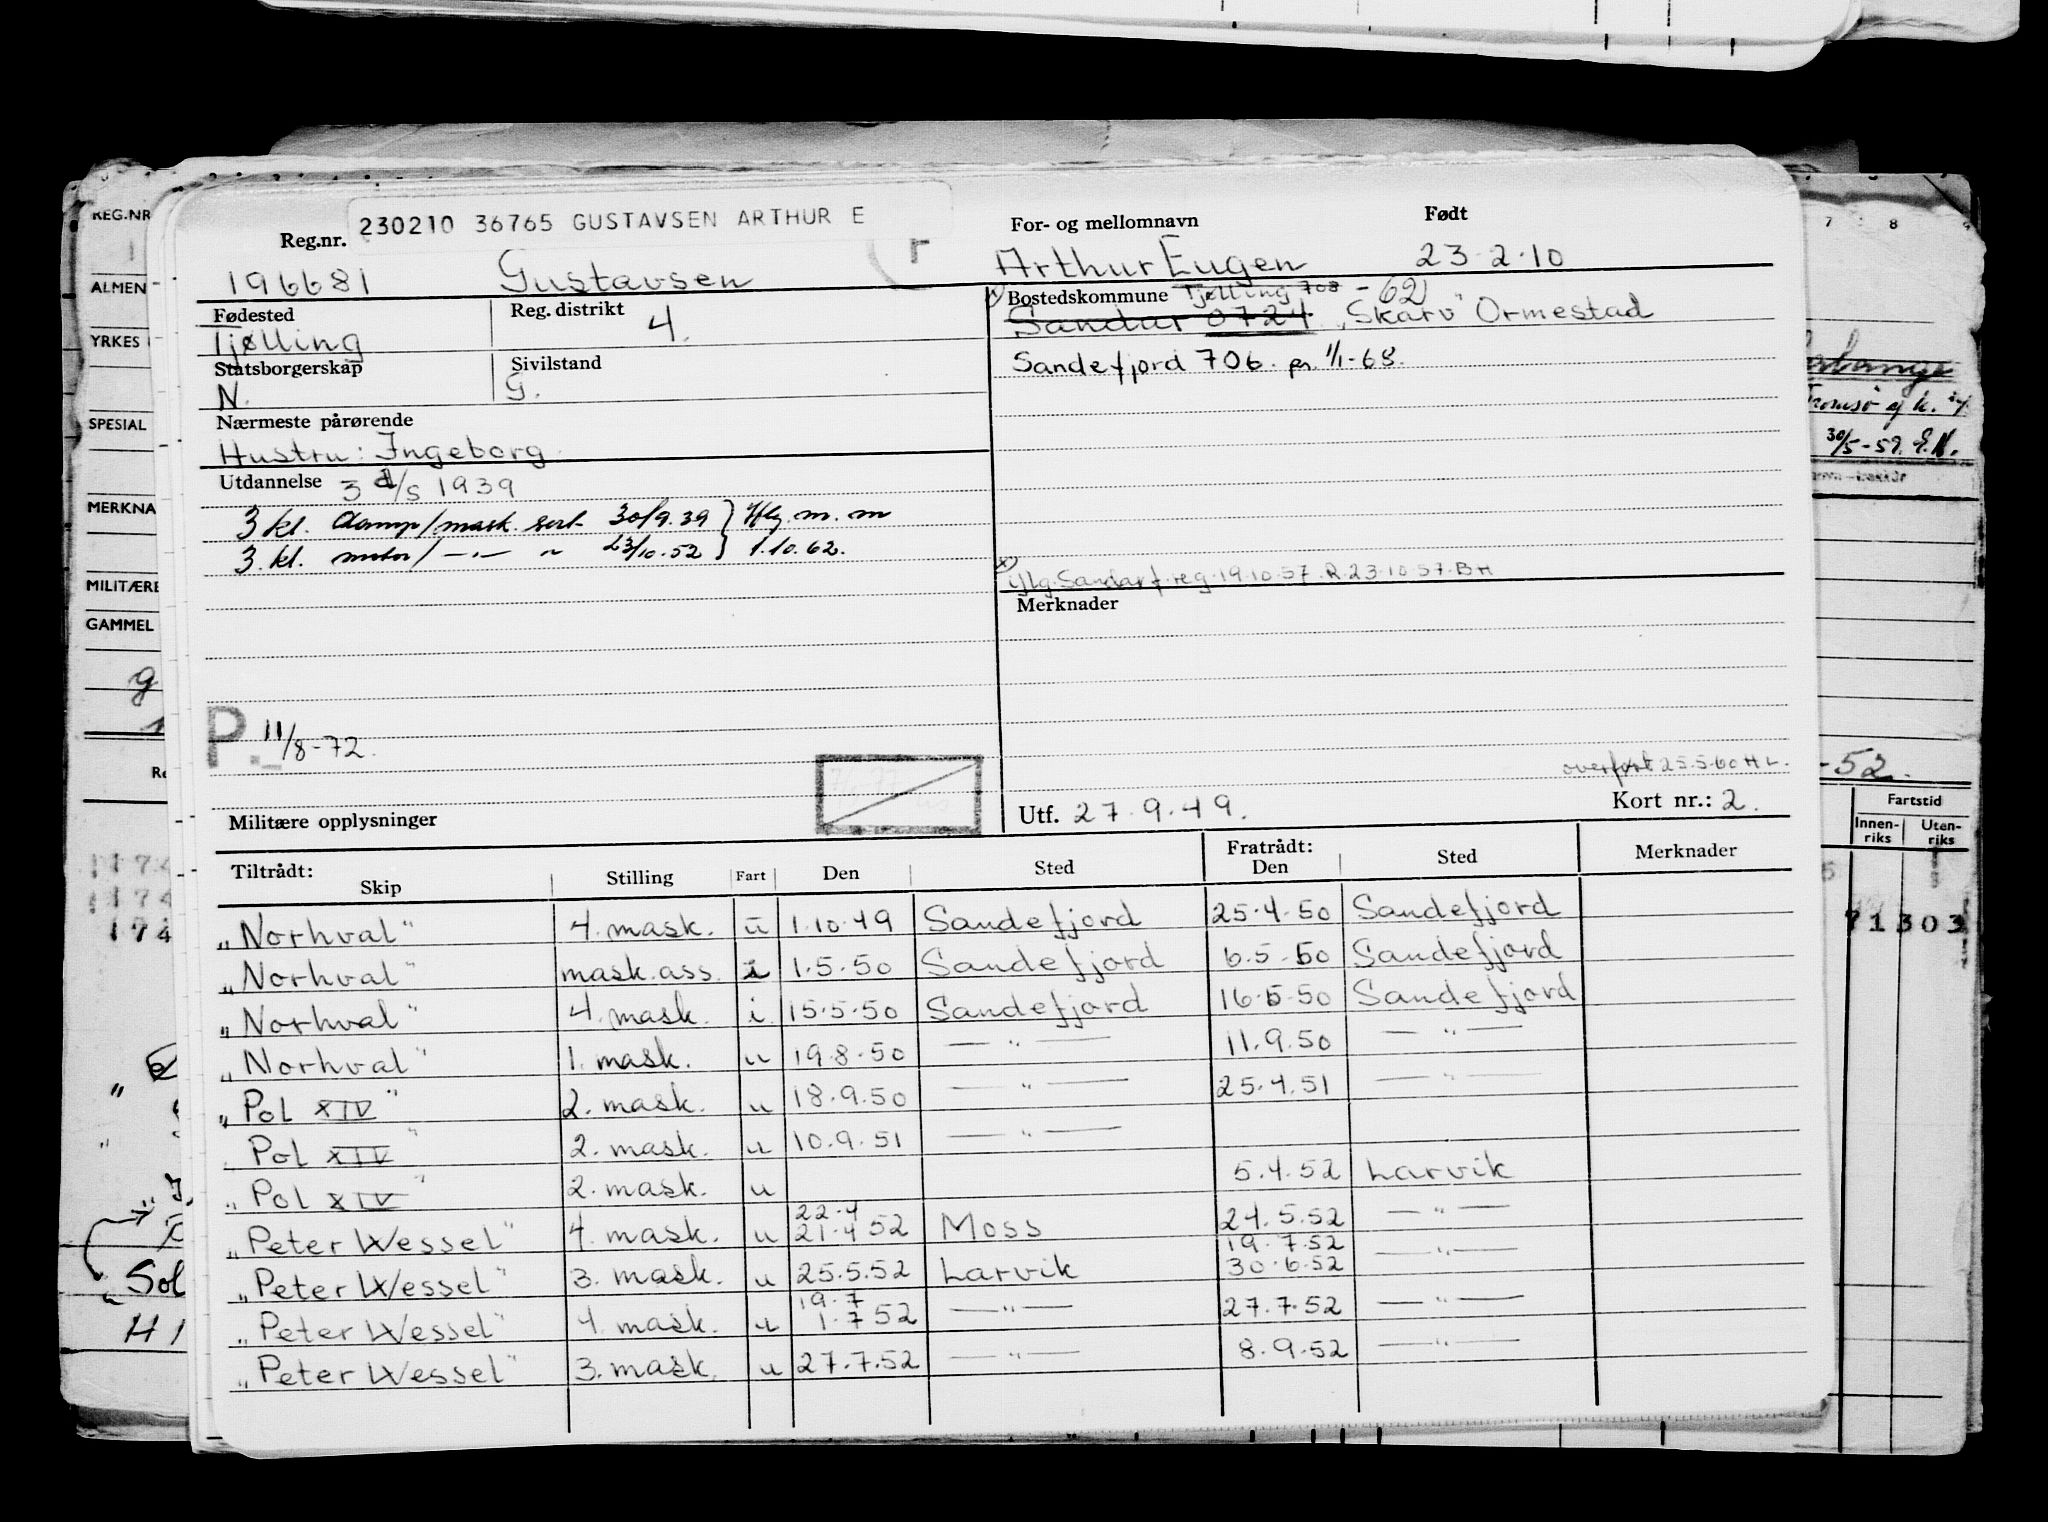 230210 36765 GUSTAVSEN ARTHUR E
Reg.nr. For- og mellomnavn Født
196681 Gustavsen Arthur Eugen 23.2.10
Fødested Reg. distrikt Bostedskommune Tjølling 708 - 62
Tjølling 4. Sandar 0724 "Skarv" Ormestad
Statsborgerskap Sivilstand Sandefjord 706. pr. 1/1-68.
N. G.
Nærmeste pårørende
Hustru: Ingeborg
Utdannelse 3 d/s 1939
3 kl. damp/mask. sert. 30/9.39 } m. m
3. kl. motor/ —.— " 23/10.52 } 1.10.62.
x) iflg. Sandar f.reg. 19.10.57. R. 23.10.57. BH
Merknader
P. 11/8-72.
overført 25.5.60 H L.
Militære opplysninger Utf. 27.9.49. Kort nr.: 2.
Tiltrådt: Fratrådt:
Skip Stilling Fart Den Sted Den Sted Merknader
„Norhval" 4. mask. u 1.10.49 Sandefjord 25.4.50 Sandefjord
„Norhval" mask.ass. i 1.5.50 Sandefjord 6.5.50 Sandefjord
„Norhval" 4. mask. i 15.5.50 Sandefjord 16.5.50 Sandefjord
„Norhval" 1. mask. u 19.8.50 — " — 11.9.50 — " —
„Pol XIV" 2. mask. u 18.9.50 — " — 25.4.51 — " —
„Pol XIV" 2. mask. u 10.9.51 — " —
„Pol XIV" 2. mask. u 5.4.52 Larvik
22.4
„Peter Wessel" 4. mask. u 21.4 52 Moss 24.5.52 — " —
19.7.52
„Peter Wessel" 3. mask. u 25.5.52 Larvik 30.6.52 — " —
19.7
„Peter Wessel" 4. mask. u 1.7 52 — " — 27.7.52 — " —
„Peter Wessel" 3. mask. u 27.7.52 — " — 8.9.52 — " —
REG.NR
ALMEN
YRKES
SPESIAL
MERKNA
MILITÆRE
GAMMEL
g
174
174
174
Sol
H
7 8
Tromsø
30/5-59. E.N.
-52.
Fartstid
Innen-riks Uten-riks
71303